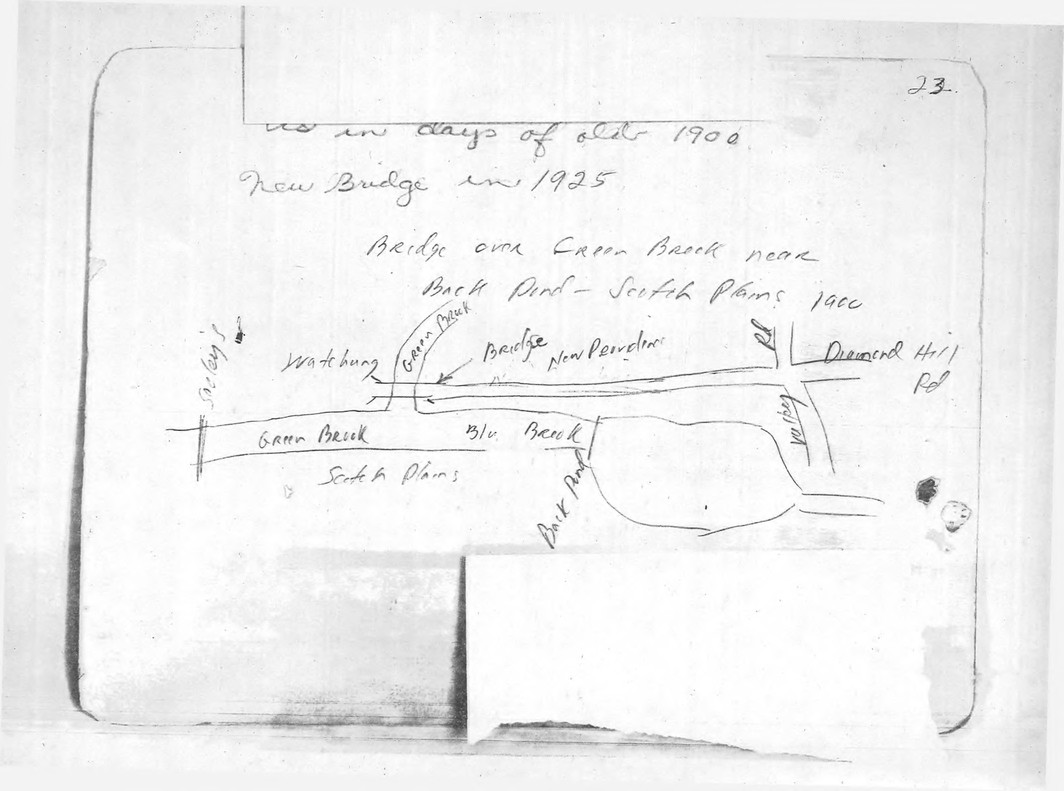 23.
us in days of old 1900.
New Bridge in 1925
Bridge over Green Brook near
Back Pond - Scotch Plains 1900
Green Brook
Watchung
Bridge
New Providence
Rd
Diamond Hill
Rd
Valley
Green Brook
Blu Brook
Scotch Plains
Back Pond